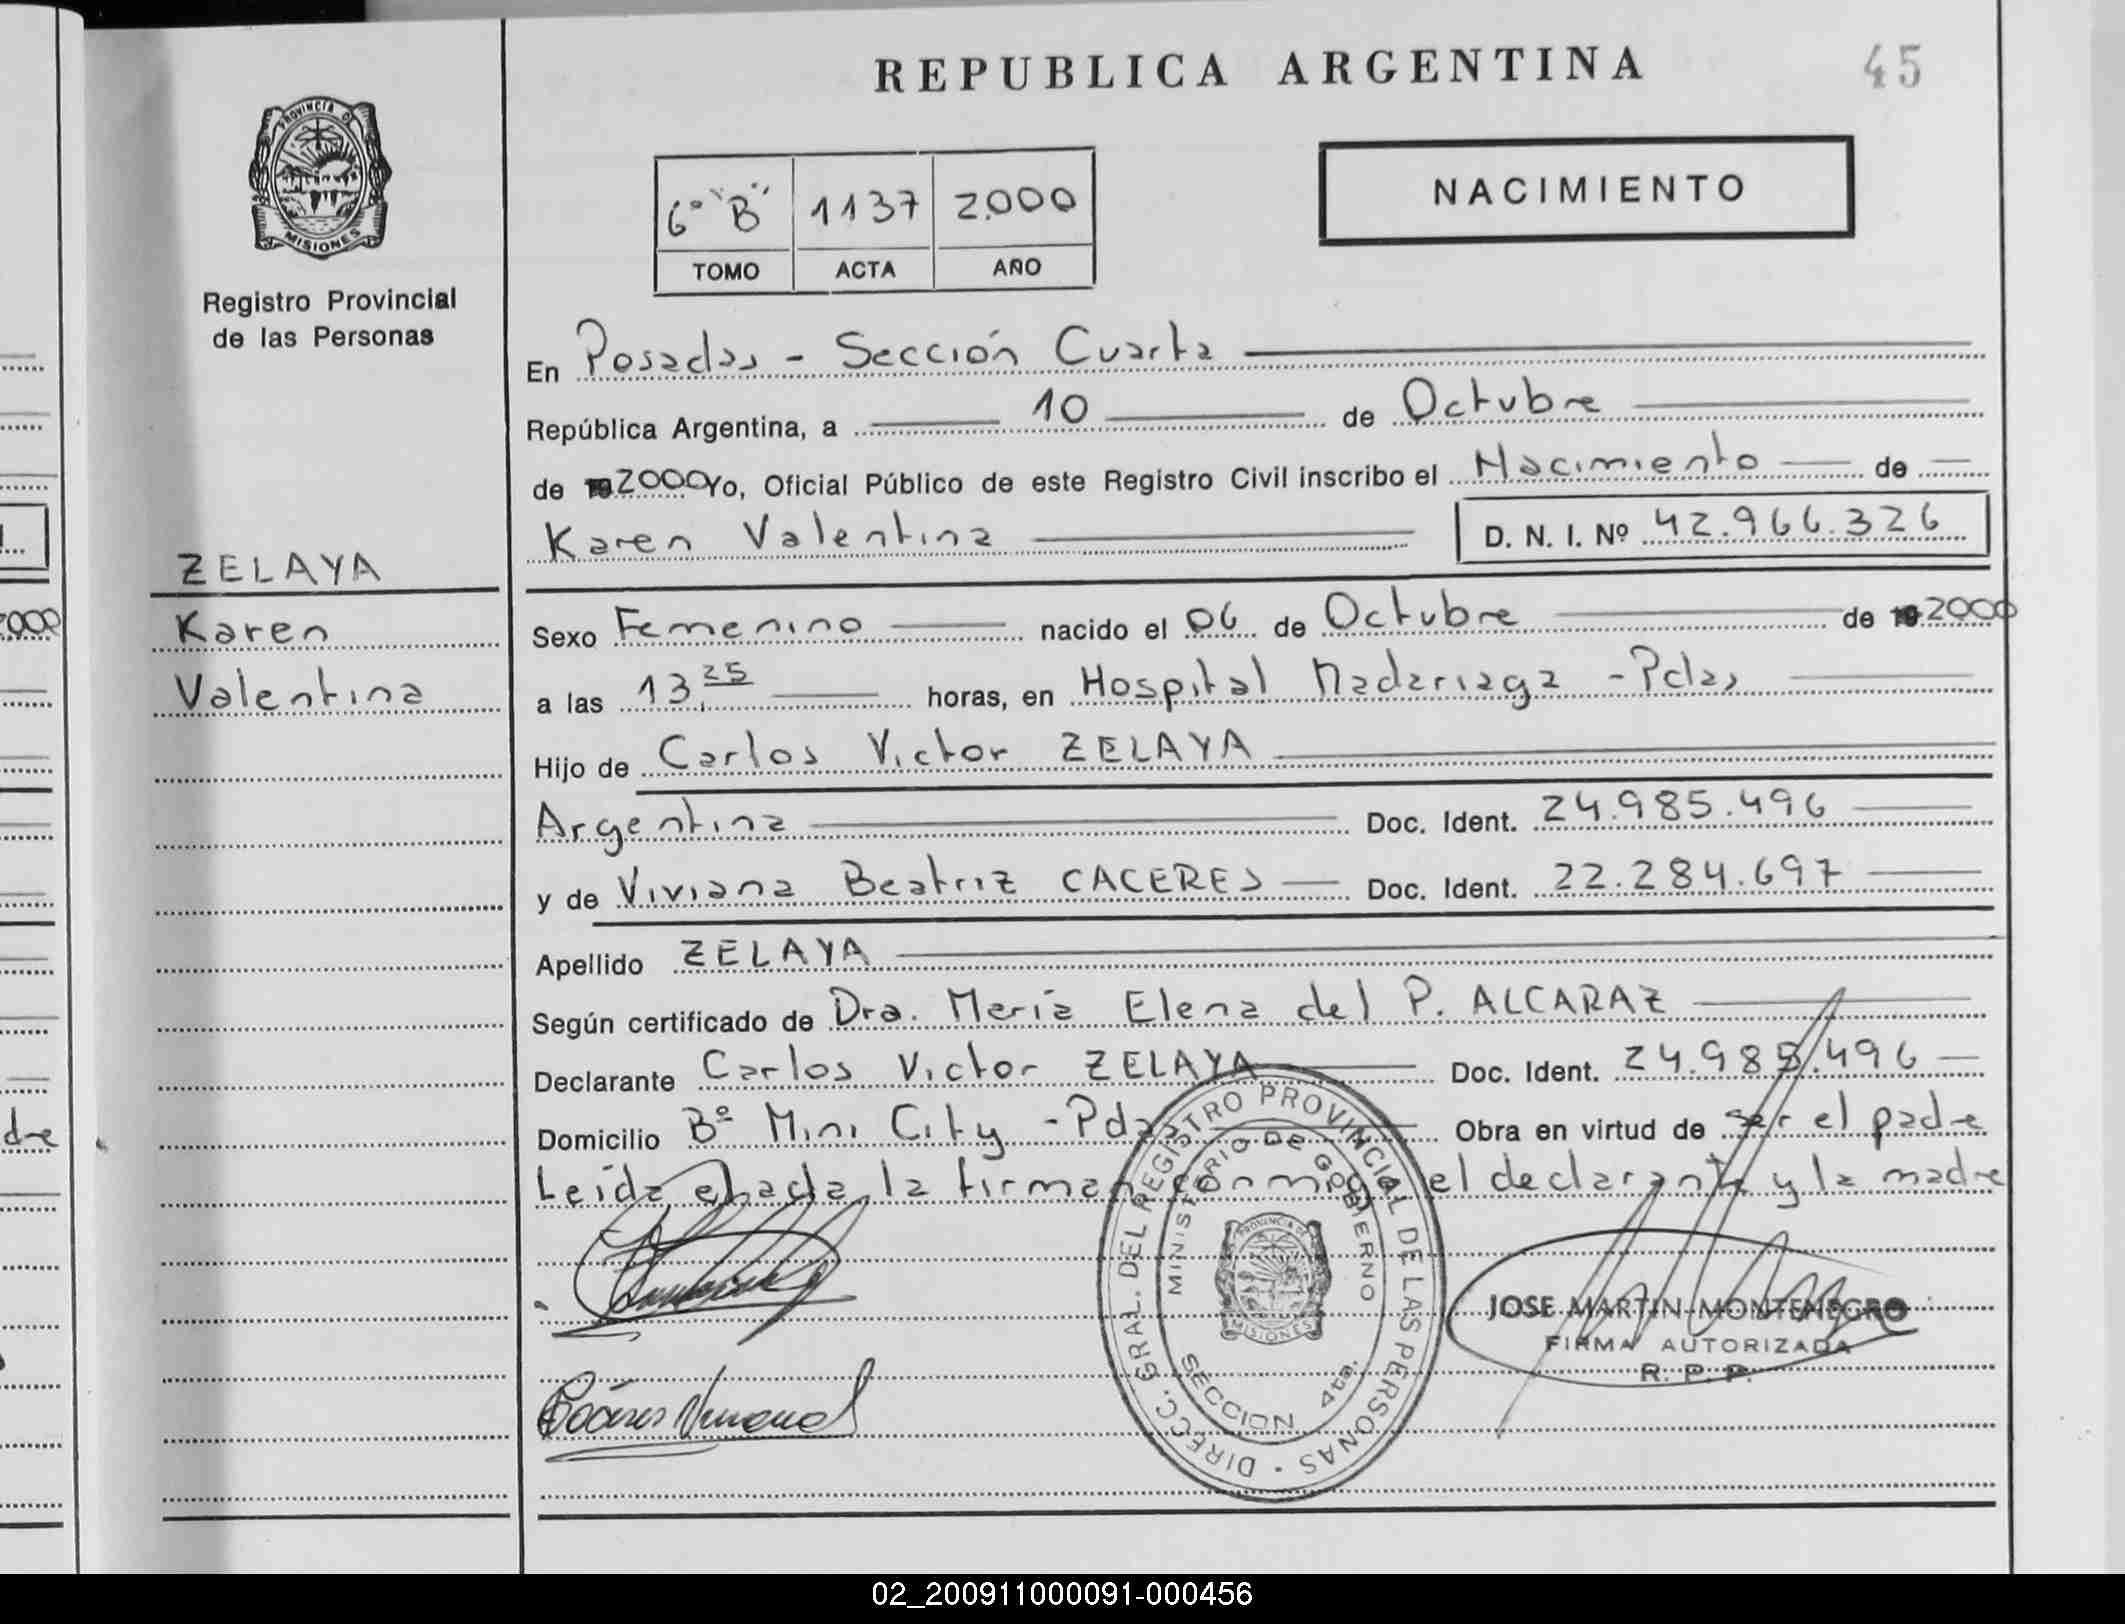 REPUBLICA ARGENTINA
45
PROVINCIA DE
MISIONES
Registro Provincial
de las Personas
6º "B" 1137 2.000
TOMO ACTA AÑO
NACIMIENTO
En Posadas - Sección Cuarta
República Argentina, a 10 de Octubre
de 2000 Yo, Oficial Público de este Registro Civil inscribo el Nacimiento de
Karen Valentina
D. N. I. Nº 42.966.326
ZELAYA
Karen
Valentina
Sexo Femenino nacido el 06 de Octubre de 2000
a las 13,25 horas, en Hospital Madariaga - Pdas
Hijo de Carlos Victor ZELAYA
Argentina Doc. Ident. 24.985.496
y de Viviana Beatriz CACERES Doc. Ident. 22.284.697
Apellido ZELAYA
Según certificado de Dra. María Elena del P. ALCARAZ
Declarante Carlos Victor ZELAYA Doc. Ident. 24.985.496
Domicilio Bº Mini City - Pdas Obra en virtud de ser el padre
Leida el acta, la firman conmigo el declarante y la madre
DIRECC. GRAL. DEL REGISTRO PROVINCIAL DE LAS PERSONAS
MINISTERIO DE GOBIERNO
PROVINCIA DE
MISIONES
SECCION 4ta.
JOSE MARTIN MONTENEGRO
FIRMA AUTORIZADA
R. P. P.
02_200911000091-000456